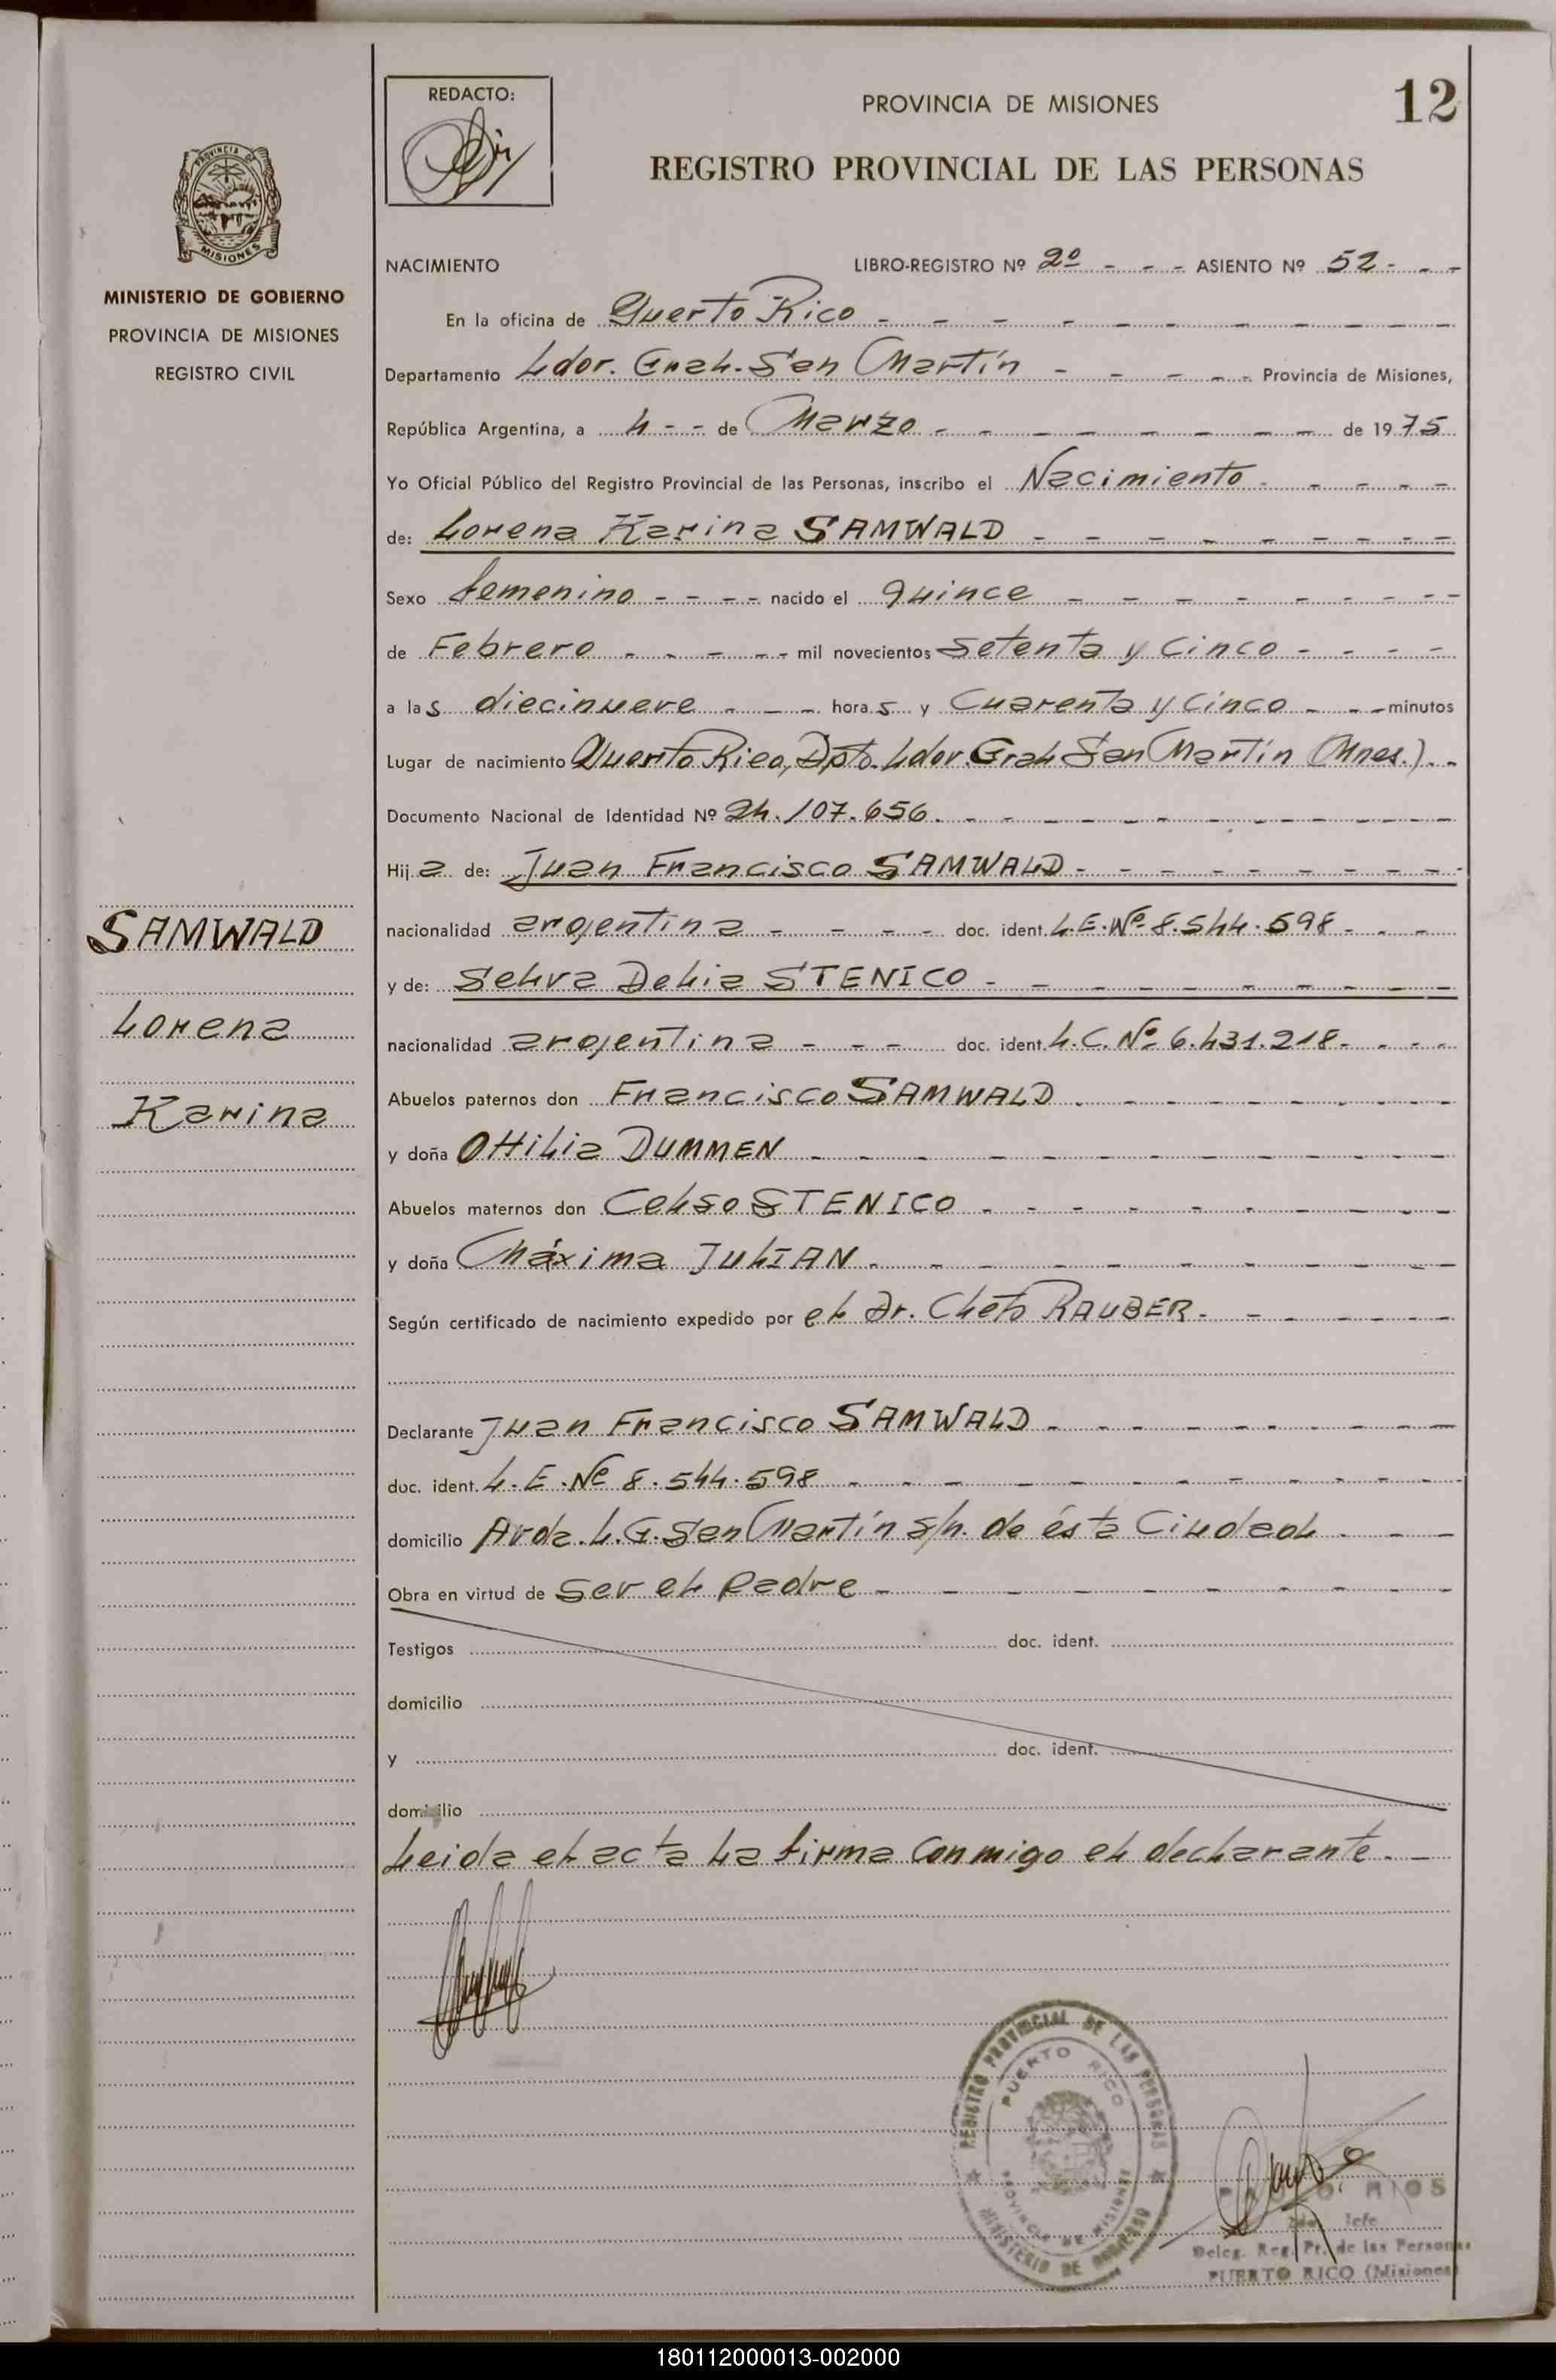 12
REDACTO:
PROVINCIA DE MISIONES
REGISTRO PROVINCIAL DE LAS PERSONAS
PROVINCIA DE
MISIONES
MINISTERIO DE GOBIERNO
PROVINCIA DE MISIONES
REGISTRO CIVIL
NACIMIENTO LIBRO-REGISTRO Nº 2º - - - ASIENTO Nº 52 - - -
En la oficina de Puerto Rico
Departamento Ldor. Gral. San Martín Provincia de Misiones,
República Argentina, a 4 - - de Marzo de 1975
Yo Oficial Público del Registro Provincial de las Personas, inscribo el Nacimiento
de: Lorena Karina SAMWALD
Sexo femenino nacido el quince
de Febrero mil novecientos setenta y cinco
a las diecinueve horas y cuarenta y cinco minutos
Lugar de nacimiento Puerto Rico, Dpto. Ldor. Gral San Martín (Mnes.).
Documento Nacional de Identidad Nº 24.107.656.
Hija de: Juan Francisco SAMWALD
SAMWALD
Lorena
Karina
nacionalidad argentina doc. ident. L.E. Nº 8.544.598
y de: Selva Delia STENICO
nacionalidad argentina doc. ident. L.C. Nº 6.431.218
Abuelos paternos don Francisco SAMWALD
y doña Ottilia DUMMEN
Abuelos maternos don Celso STENICO
y doña Máxima JULIAN
Según certificado de nacimiento expedido por el Dr. Cleto RAUBER
Declarante Juan Francisco SAMWALD
doc. ident. L.E. Nº 8.544.598
domicilio Avda. L.G. San Martín s/n. de ésta Ciudad
Obra en virtud de ser el padre
Testigos doc. ident.
domicilio
y doc. ident.
domicilio
Leida el acta la firma conmigo el declarante.
REGISTRO PROVINCIAL DE LAS PERSONAS
PUERTO RICO
PROVINCIA DE MISIONES
MINISTERIO DE GOBIERNO
RIOS
Jefe
Deleg. Reg. Pr. de las Personas
PUERTO RICO (Misiones)
180112000013-002000